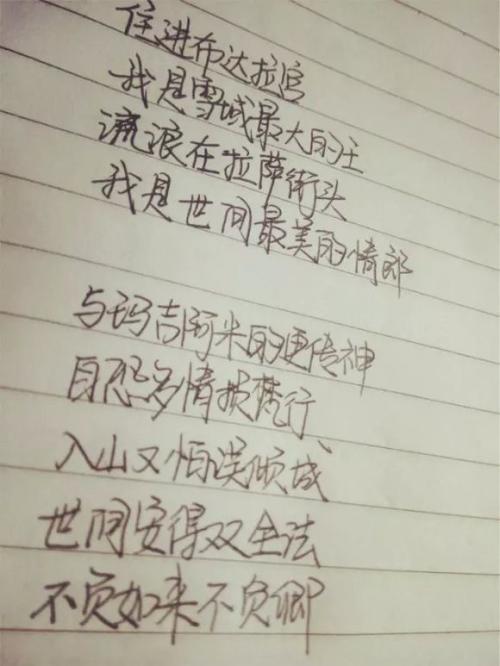 住进布达拉宫
我是雪域最大的王
流浪在拉萨街头
我是世间最美的情郎
与玛吉阿米的更传神
自恐多情损梵行、
入山又怕误倾城
世间安得双全法
不负如来不负卿